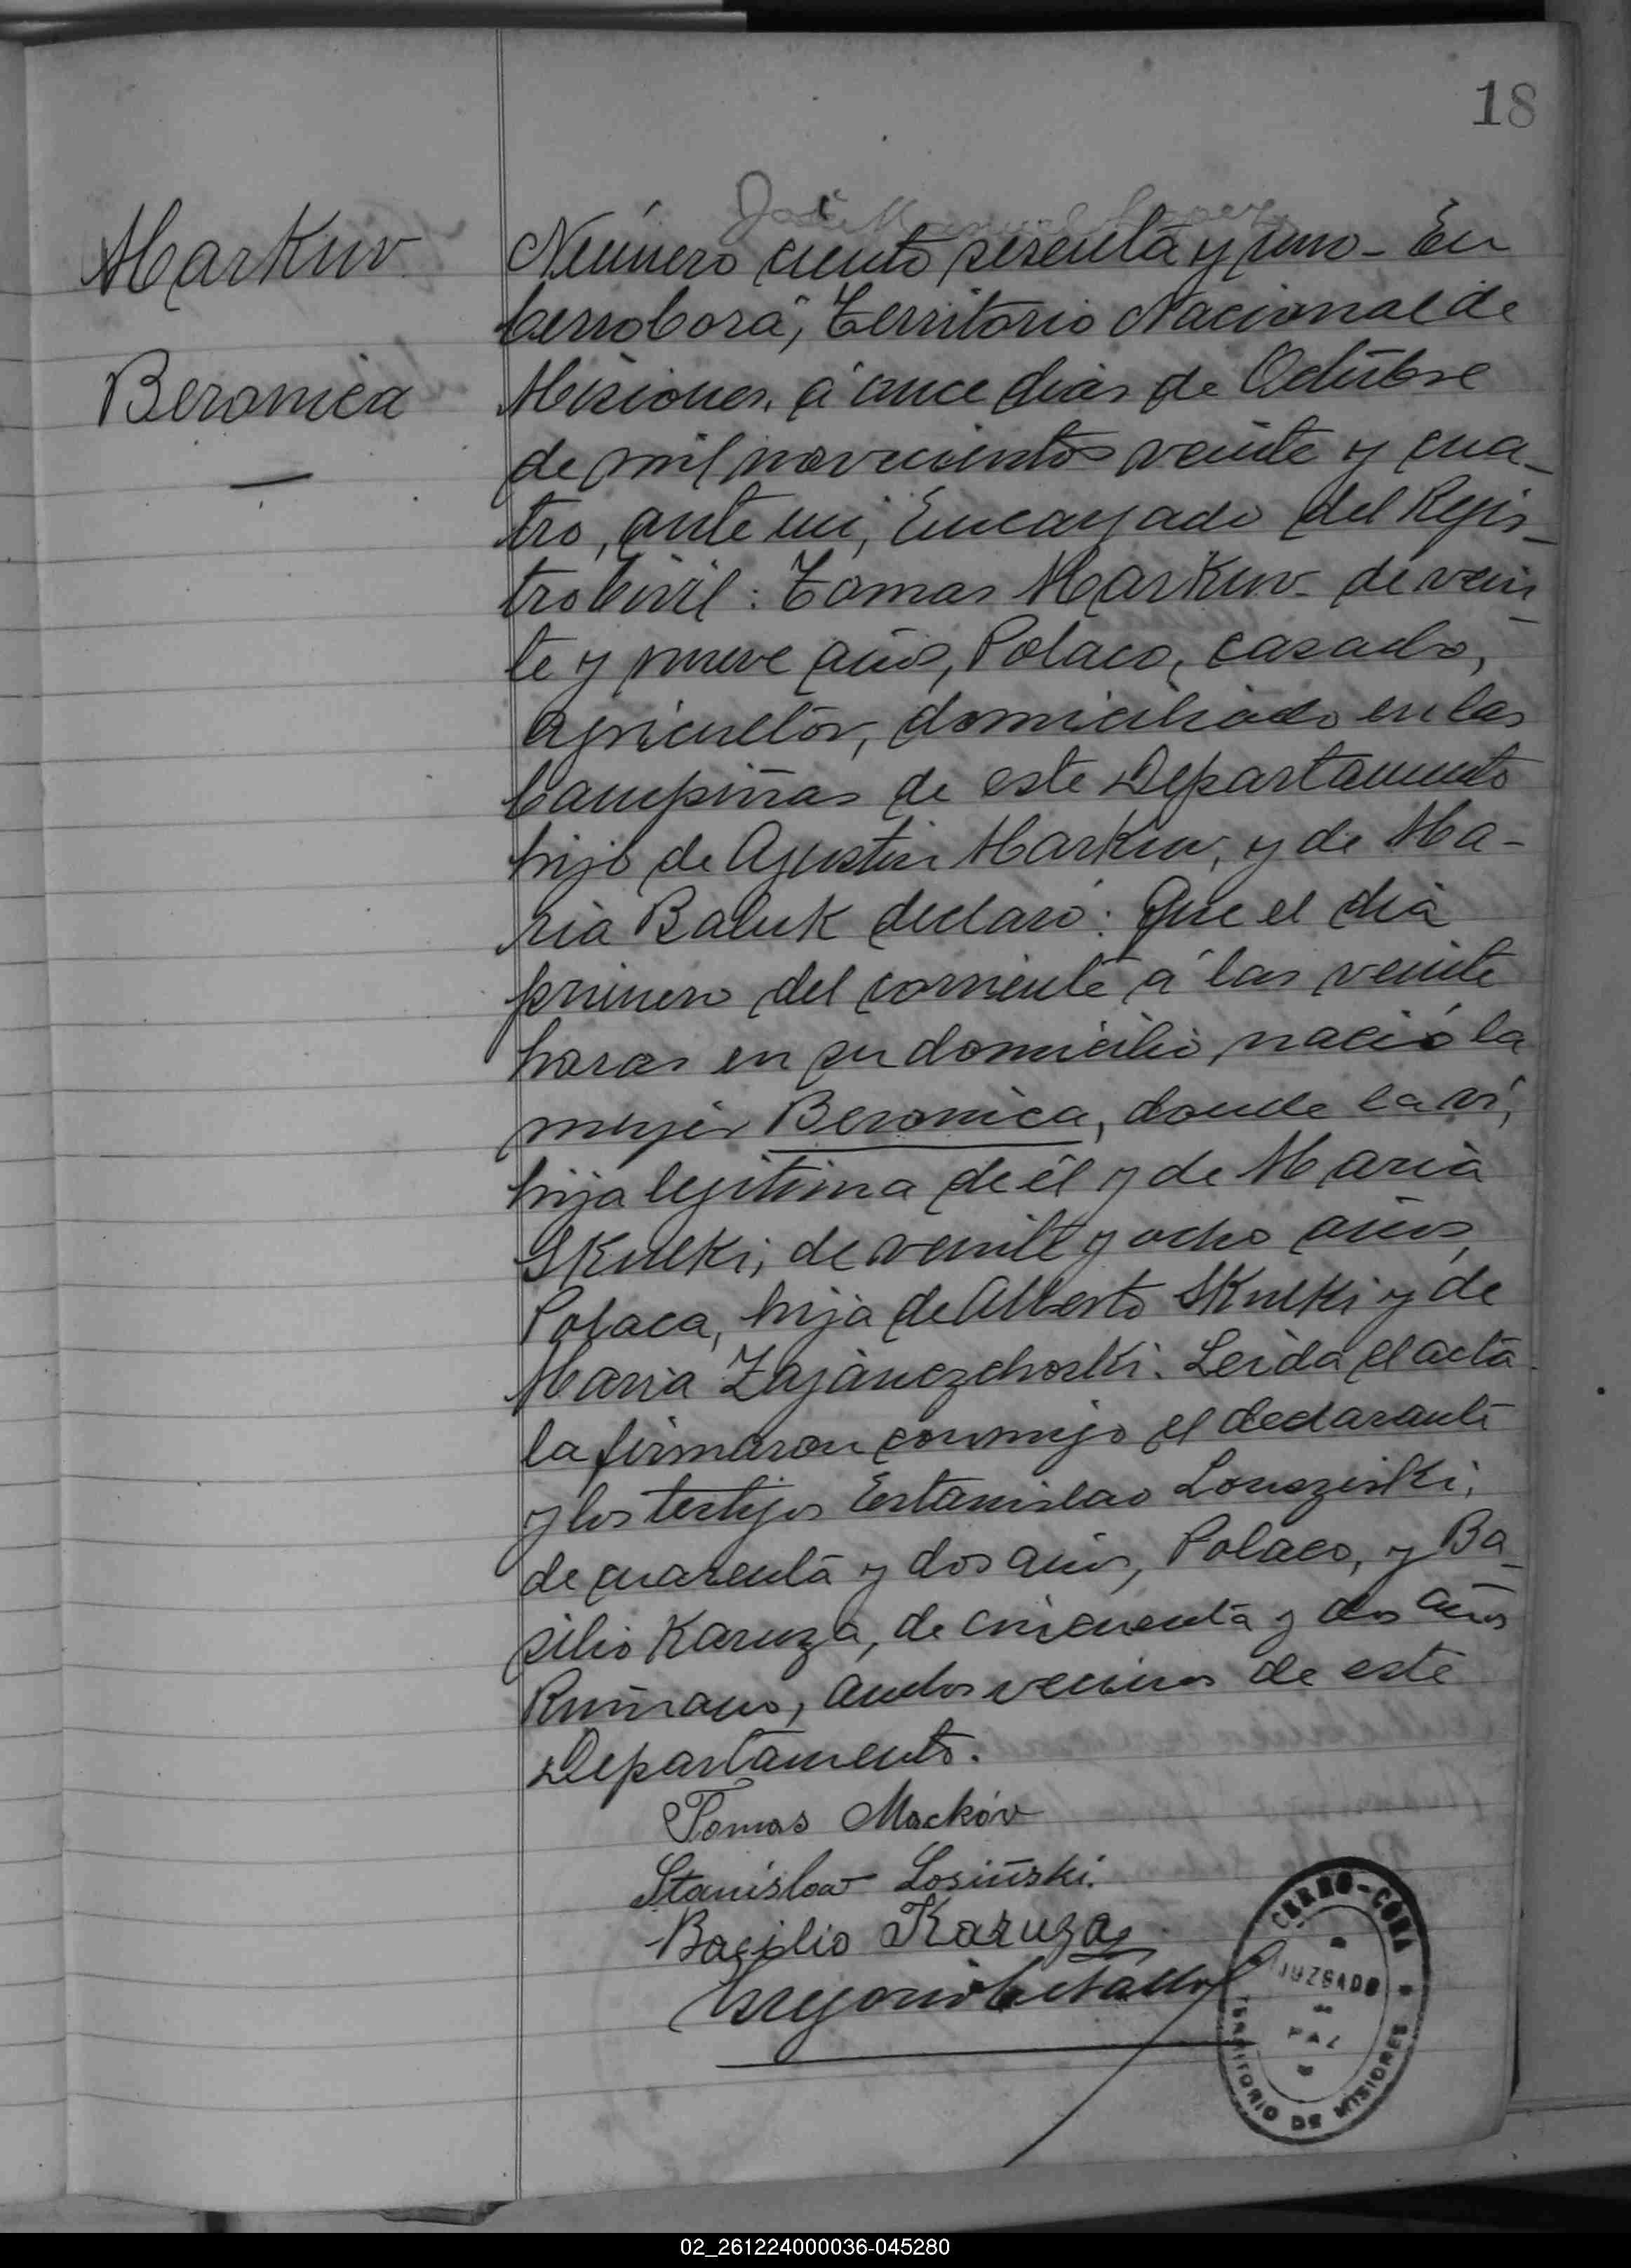 18
José Manuel Lopez
Markuv
Beronica
Número ciento sesenta y uno - En
Cerro Corá, Territorio Nacional de
Misiones, á once dias de Octubre
de mil novecientos veinte y cua-
tro, ante mi, Encargado del Regis-
tro Civil: Tomas Markuv - de vein-
te y nueve años, Polaco, casado,
agricultor, domiciliado en las
Campiñas de este Departamento
hijo de Agustin Markuv, y de Ma-
ria Baluk declaró: Que el dia
primero del corriente á las veinte
horas en su domicilio nació la
mujer Beronica, donde la ví,
hija legitima de él y de Maria
Skulki, de veinte y ocho años,
Polaca, hija de Alberto Skulki y de
Maria Zajanczchoski. Leida el acta
la firmaron conmigo el declarante
y los testigos Estanislao Lonsziski,
de cuarenta y dos años, Polaco, y Ba-
silio Karuza, de cincuenta y dos años
Rumano, ambos vecinos de este
Departamento.
Tomas Mackóv
Stanisław Łosiński.
Bacilio Karuza
Gregorio
CERRO-CORA
JUZGADO
de
PAZ
TERRITORIO DE MISIONES
02_261224000036-045280